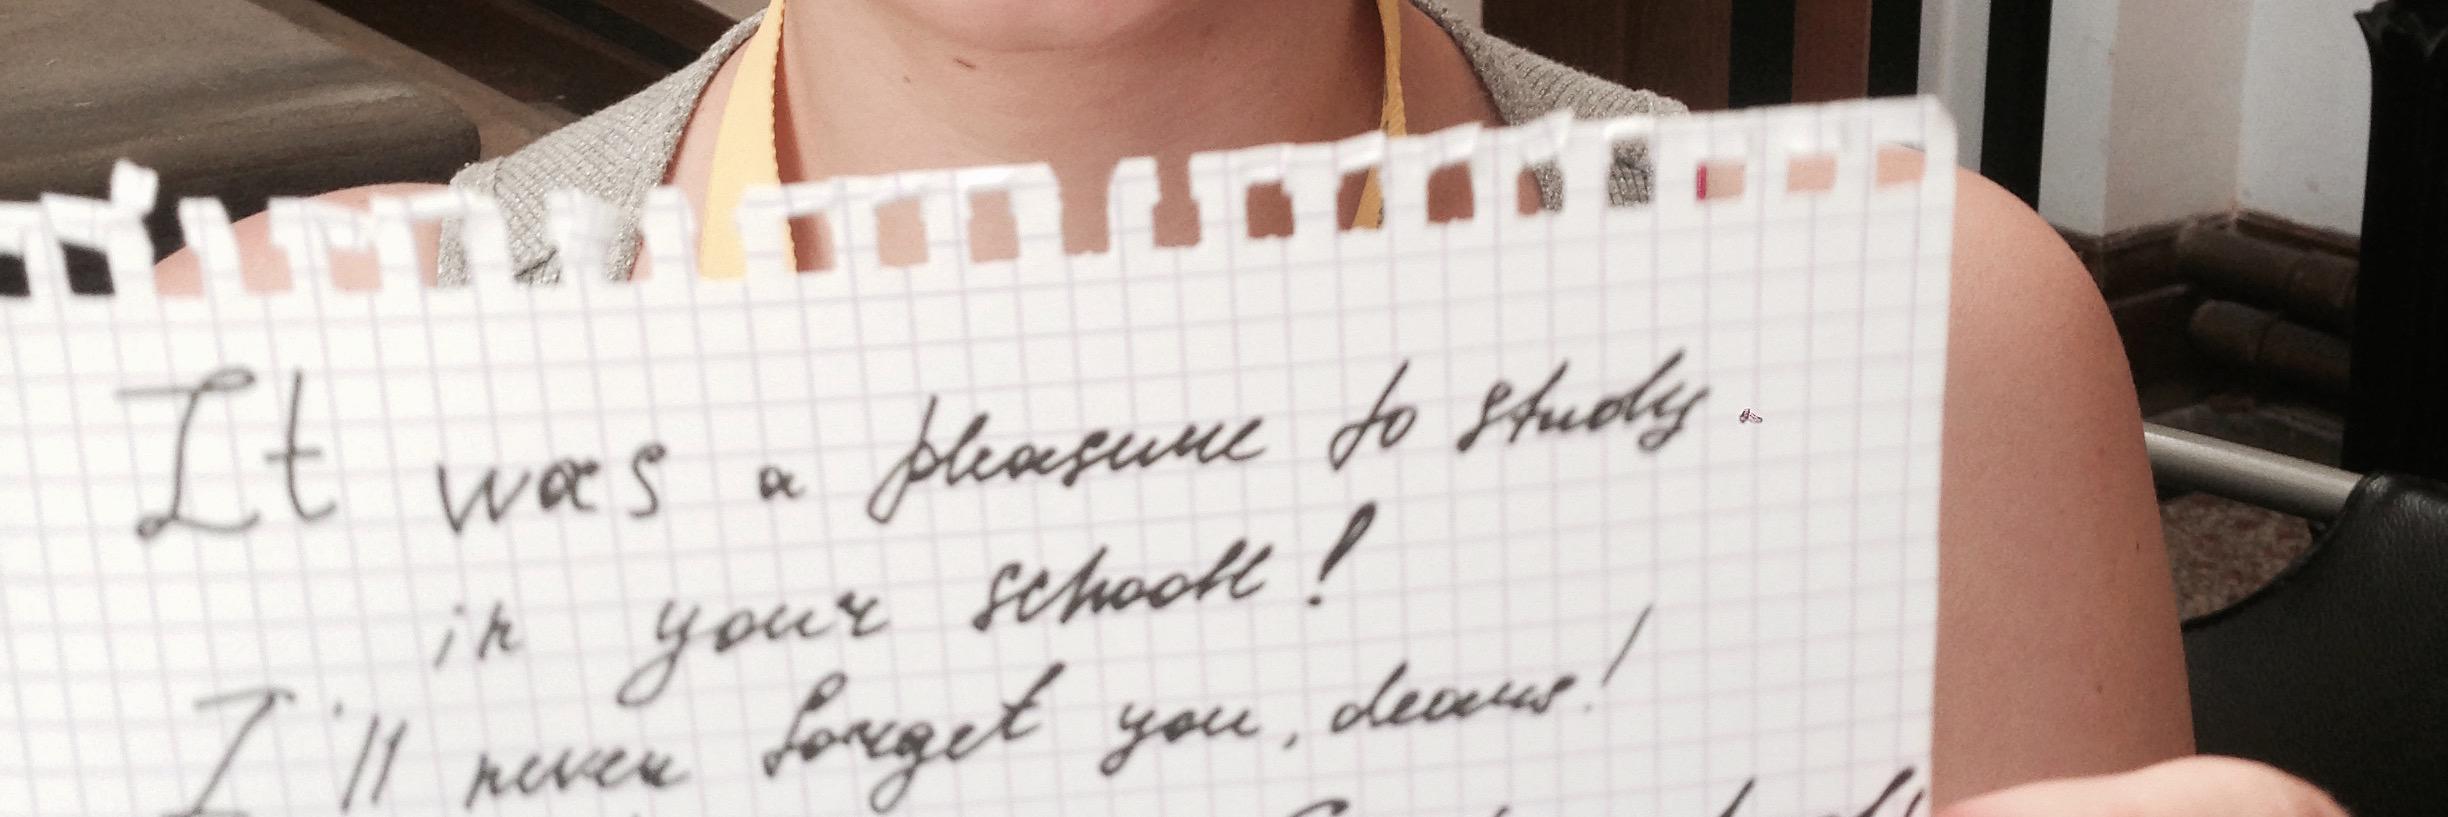 It was a pleasure to study
in your school!
I'll never forget you, dears!